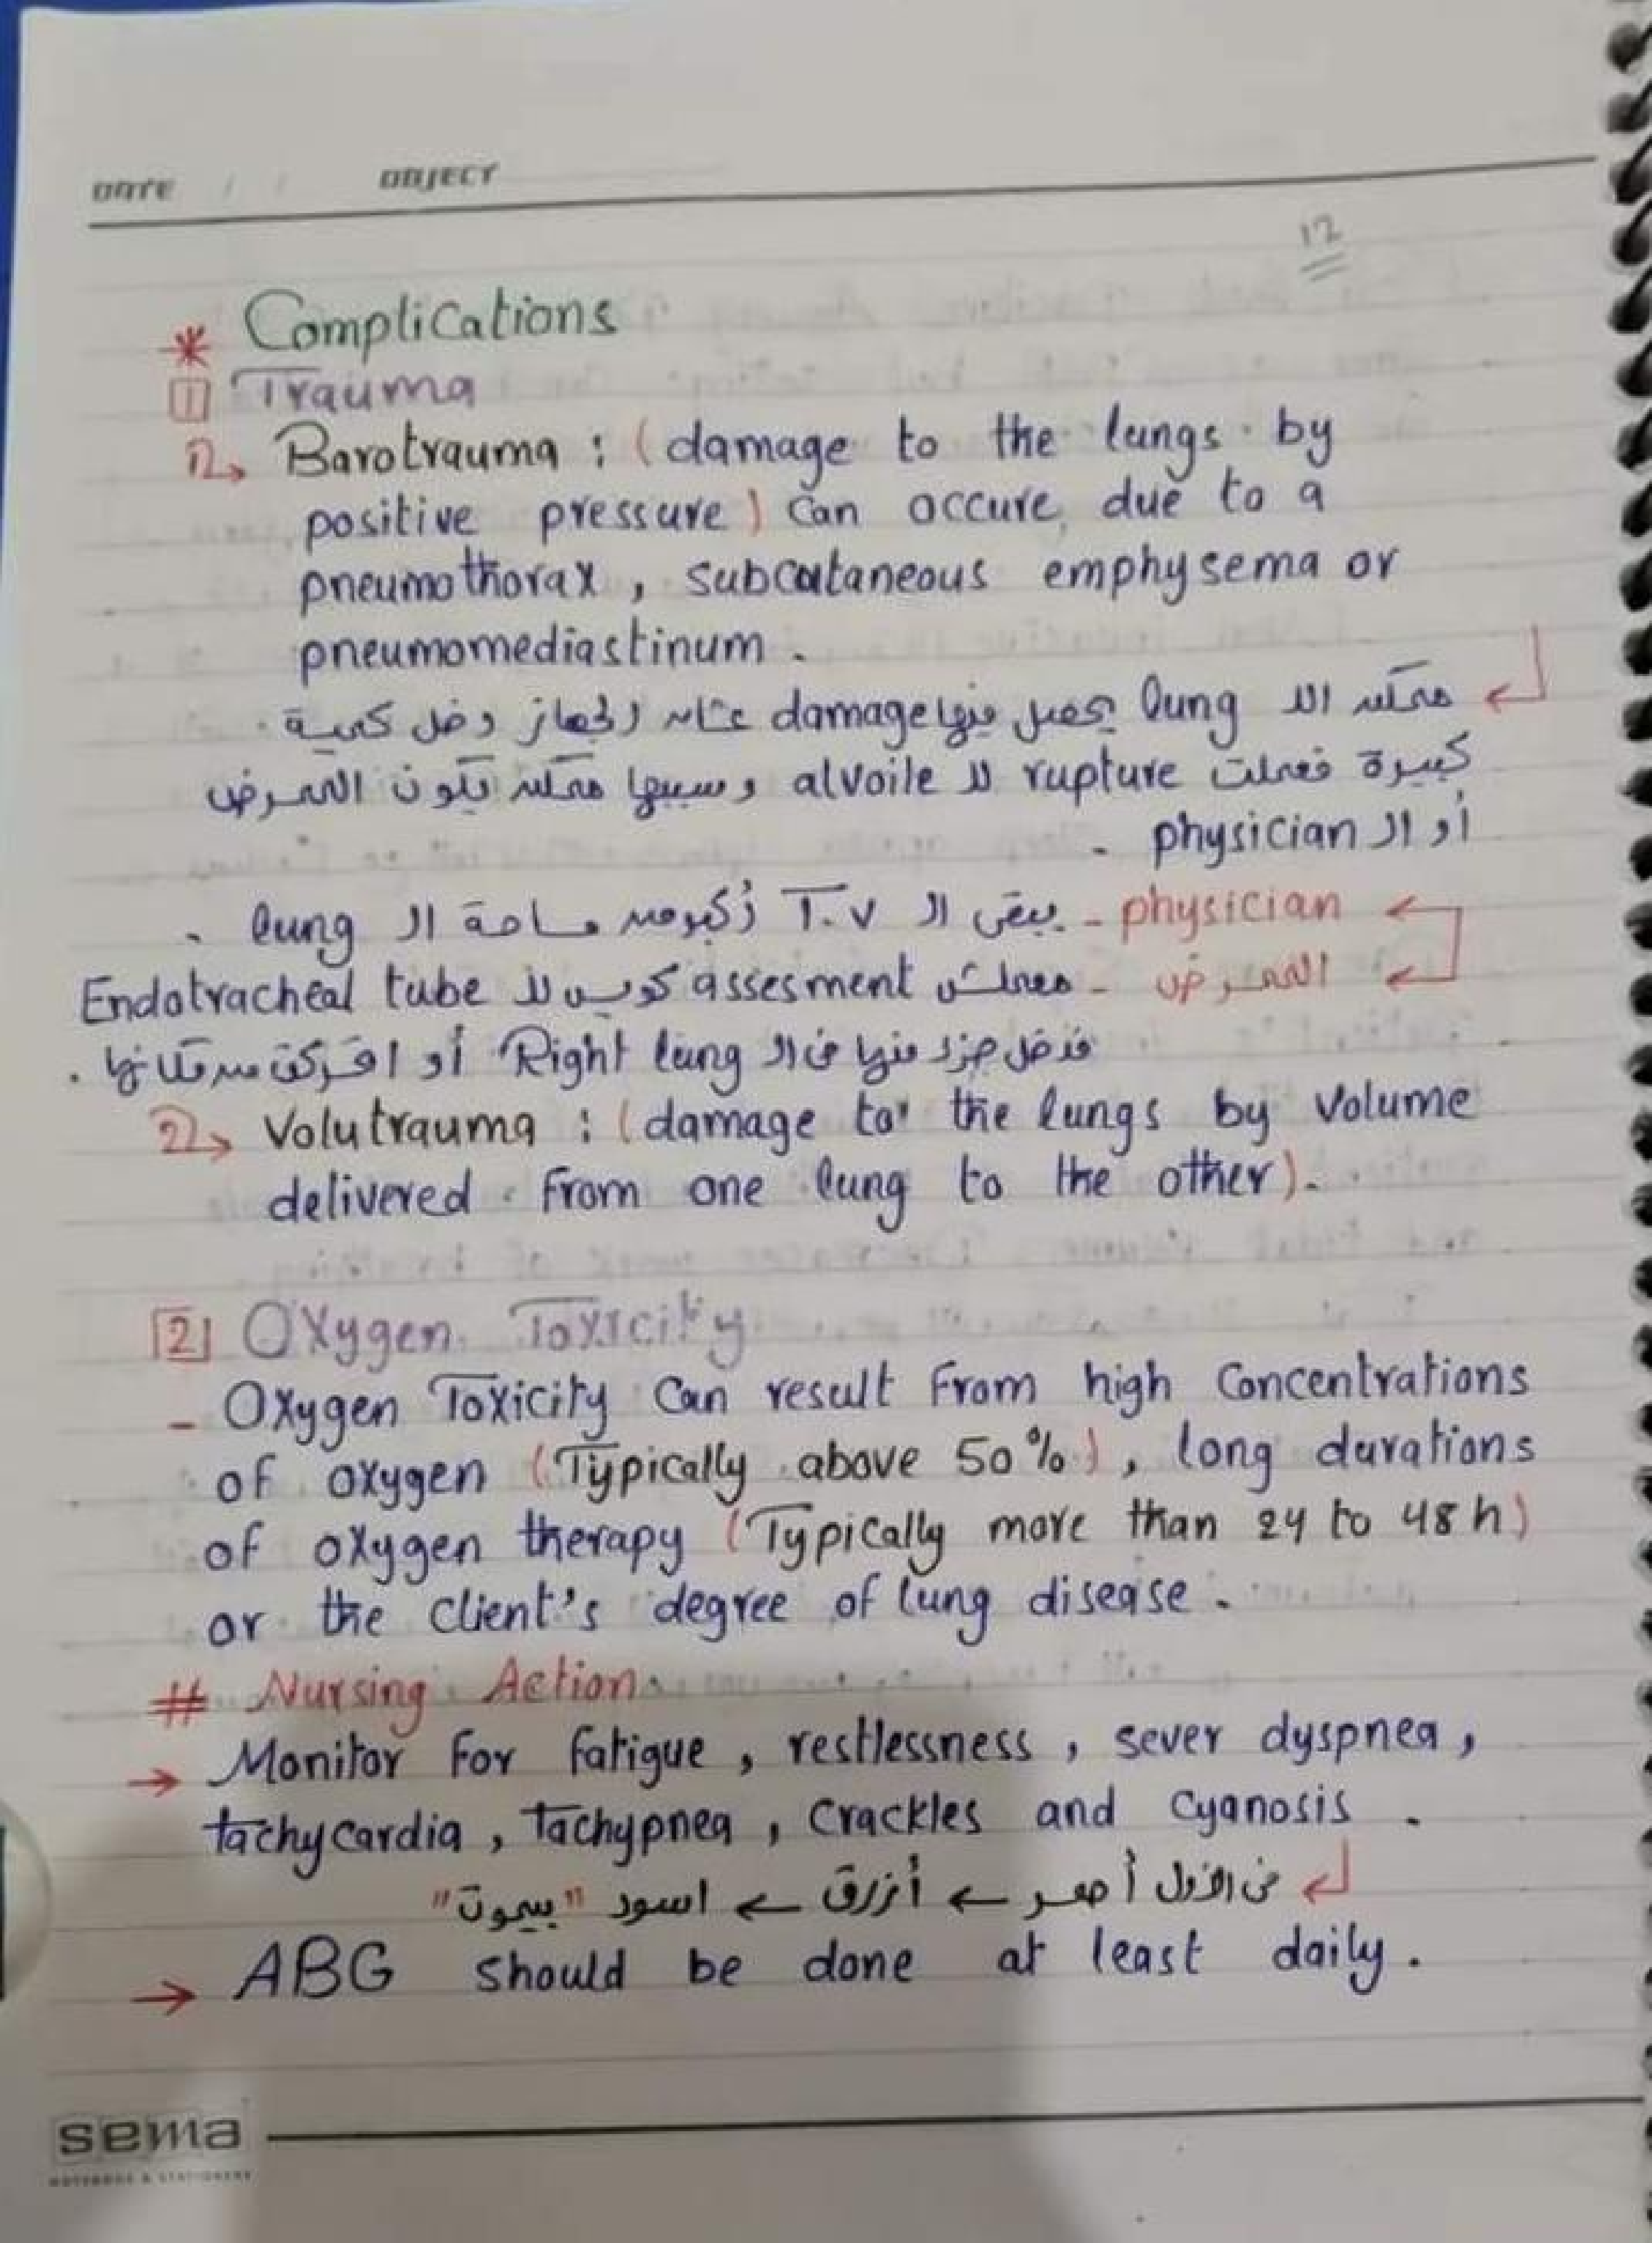 DATE / / OBJECT
12
* Complications
1 Trauma
1 → Barotrauma : (damage to the lungs by
positive pressure) can occure due to a
pneumothorax , subcutaneous emphysema or
pneumomediastinum .
ممكن الـ lung يحصل فيها damage عشان الجهاز دخل كمية
كبيرة فعملت rupture للـ alvoile وسببها ممكن تكون الممرض
أو الـ physician .
physician - يبقى الـ T.V أكبر من مساحة الـ lung .
الممرض - معملش assesment كويس للـ Endotracheal tube
فدخل جزء منها في الـ Right lung أو اتحركت من مكانها .
2 → Volutrauma : (damage to the lungs by volume
delivered from one lung to the other).
2 Oxygen Toxicity
- Oxygen Toxicity Can result From high Concentrations
of oxygen (Typically above 50%) , long durations
of oxygen therapy (Typically more than 24 to 48 h)
or the client's degree of lung disease .
# Nursing Action
→ Monitor For fatigue , restlessness , sever dyspnea ,
tachycardia , tachypnea , crackles and cyanosis .
في الأول أصفر ← أزرق ← اسود "بيموت"
→ ABG should be done at least daily .
sema
NOTEBOOK & STATIONERY